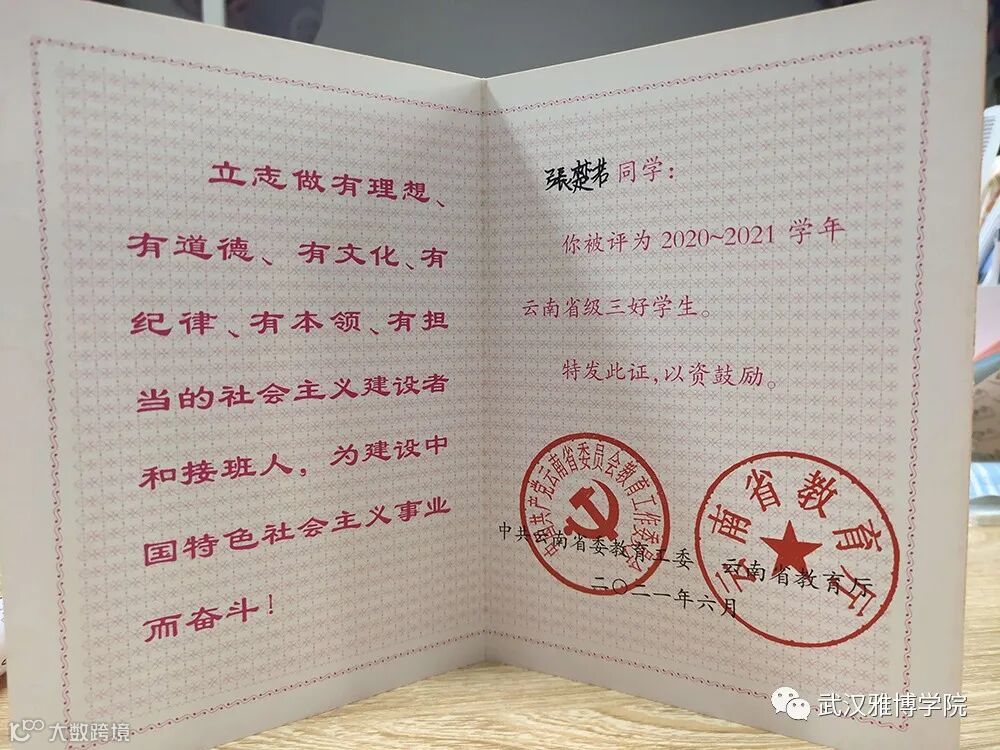 立志做有理想、
有道德、有文化、有
纪律、有本领、有担
当的社会主义建设者
和接班人，为建设中
国特色社会主义事业
而奋斗！
張楚若 同学：
你被评为 2020~2021 学年
云南省级三好学生。
特发此证，以资鼓励。
中国共产党云南省委员会教育工作委员会
云南省教育厅
中共云南省委教育工委 云南省教育厅
二〇二一年六月
武汉雅博学院
大数跨境